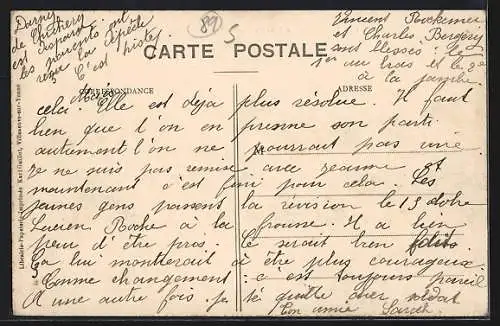 Darney
de Chuchery
est disparu
les parents ont
reçu la dépêche
C'est triste.
89
5
Vincent Rockemer
et Charles Bergery
sont blessés : le
1er au bras et le 2e
à la jambe.
CARTE POSTALE
CORRESPONDANCE
ADRESSE
cela. Elle est déjà plus résolue. Il faut
bien que l'on en prenne son parti
autrement l'on ne pourrait pas vivre
Je ne suis pas remise avec Jeanne et
maintenant c'est fini pour cela. Les
jeunes gens passent la révision le 13 octobre
Lucien Roche à la frousse. Il a bien
peur d'être pris. Ce serait bien
Ça lui montrerait à être plus courageux
Comme changement : c'est toujours pareil
A une autre fois. je te quitte cher soldat
Ton amie Sarah
Librairie-Papeterie-Imprimerie Villeneuve-sur-Yonne